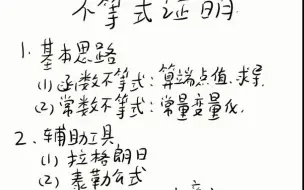 不等式证明
1. 基本思路
(1) 函数不等式：算端点值、求导.
(2) 常数不等式：常量变量化.
2、辅助工具
(1) 拉格朗日
(2) 泰勒公式